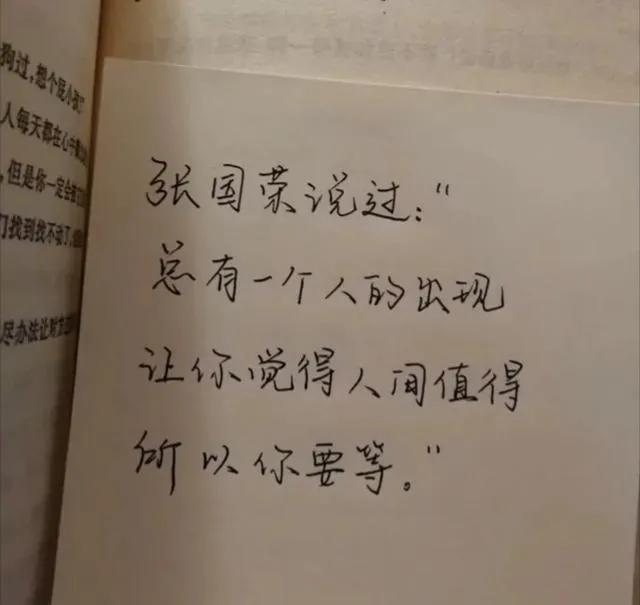 狗过，想个屁小孩”
人每天都在心中
，但是你一定会
们找到找不动了，
尽办法让
张国荣说过：“
总有一个人的出现
让你觉得人间值得
所以你要等。”